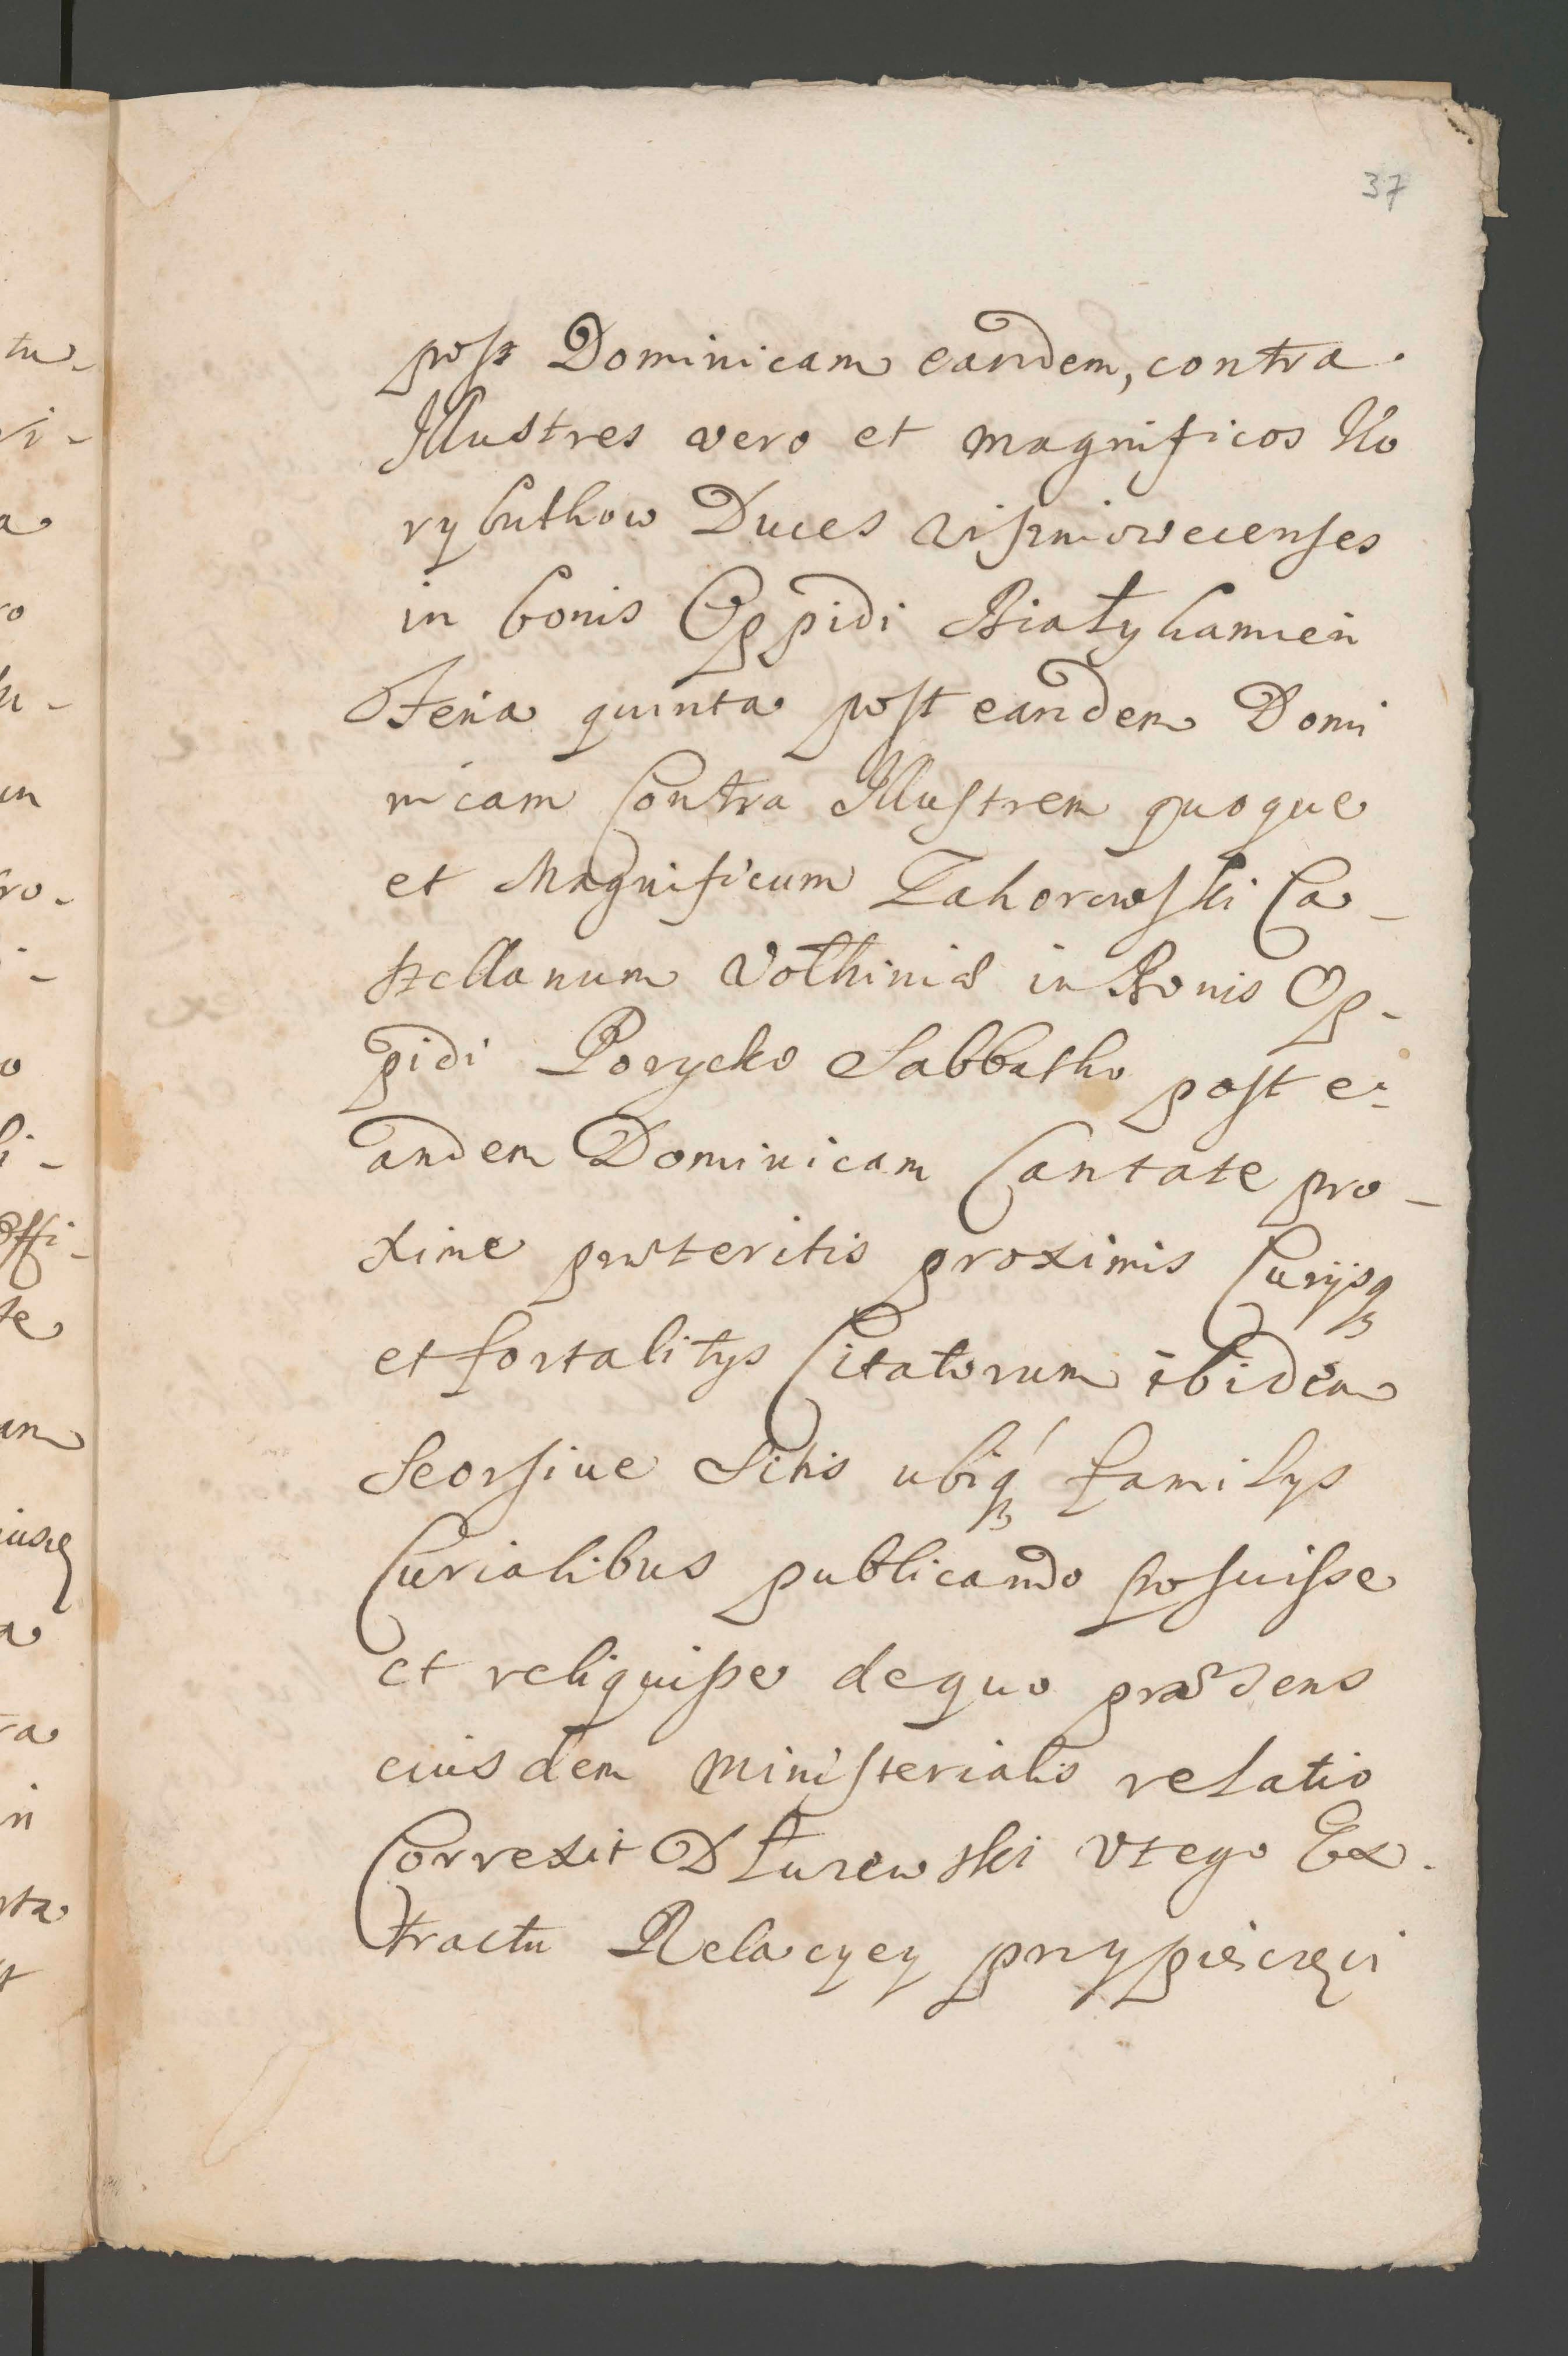 37
post Dominicam eandem, contra
Illustres vero et magnificos Ko
rybuthow Duces Viszniowecenses
in bonis Oppidi Białykamien
Feria quinta post eandem Domi
nicam Contra Illustrem quoque
et Magnificum Zahorowski Ca-
stellanum Volhiniæ in Bonis Op-
pidi Porycko Sabbatho post e-
andem Dominicam Cantate pro-
xime præteritis proximis Curijsq
et fortalitys Citatorum ibidem
Seorsiue Sitis ubiq familys
Curialibus publicando posuisse
et reliquisse de quo præsens
eiusdem ministerialis relatio
Correxit Dłurewski Vtego Ex-
tractu Relacyey przy pieczęci